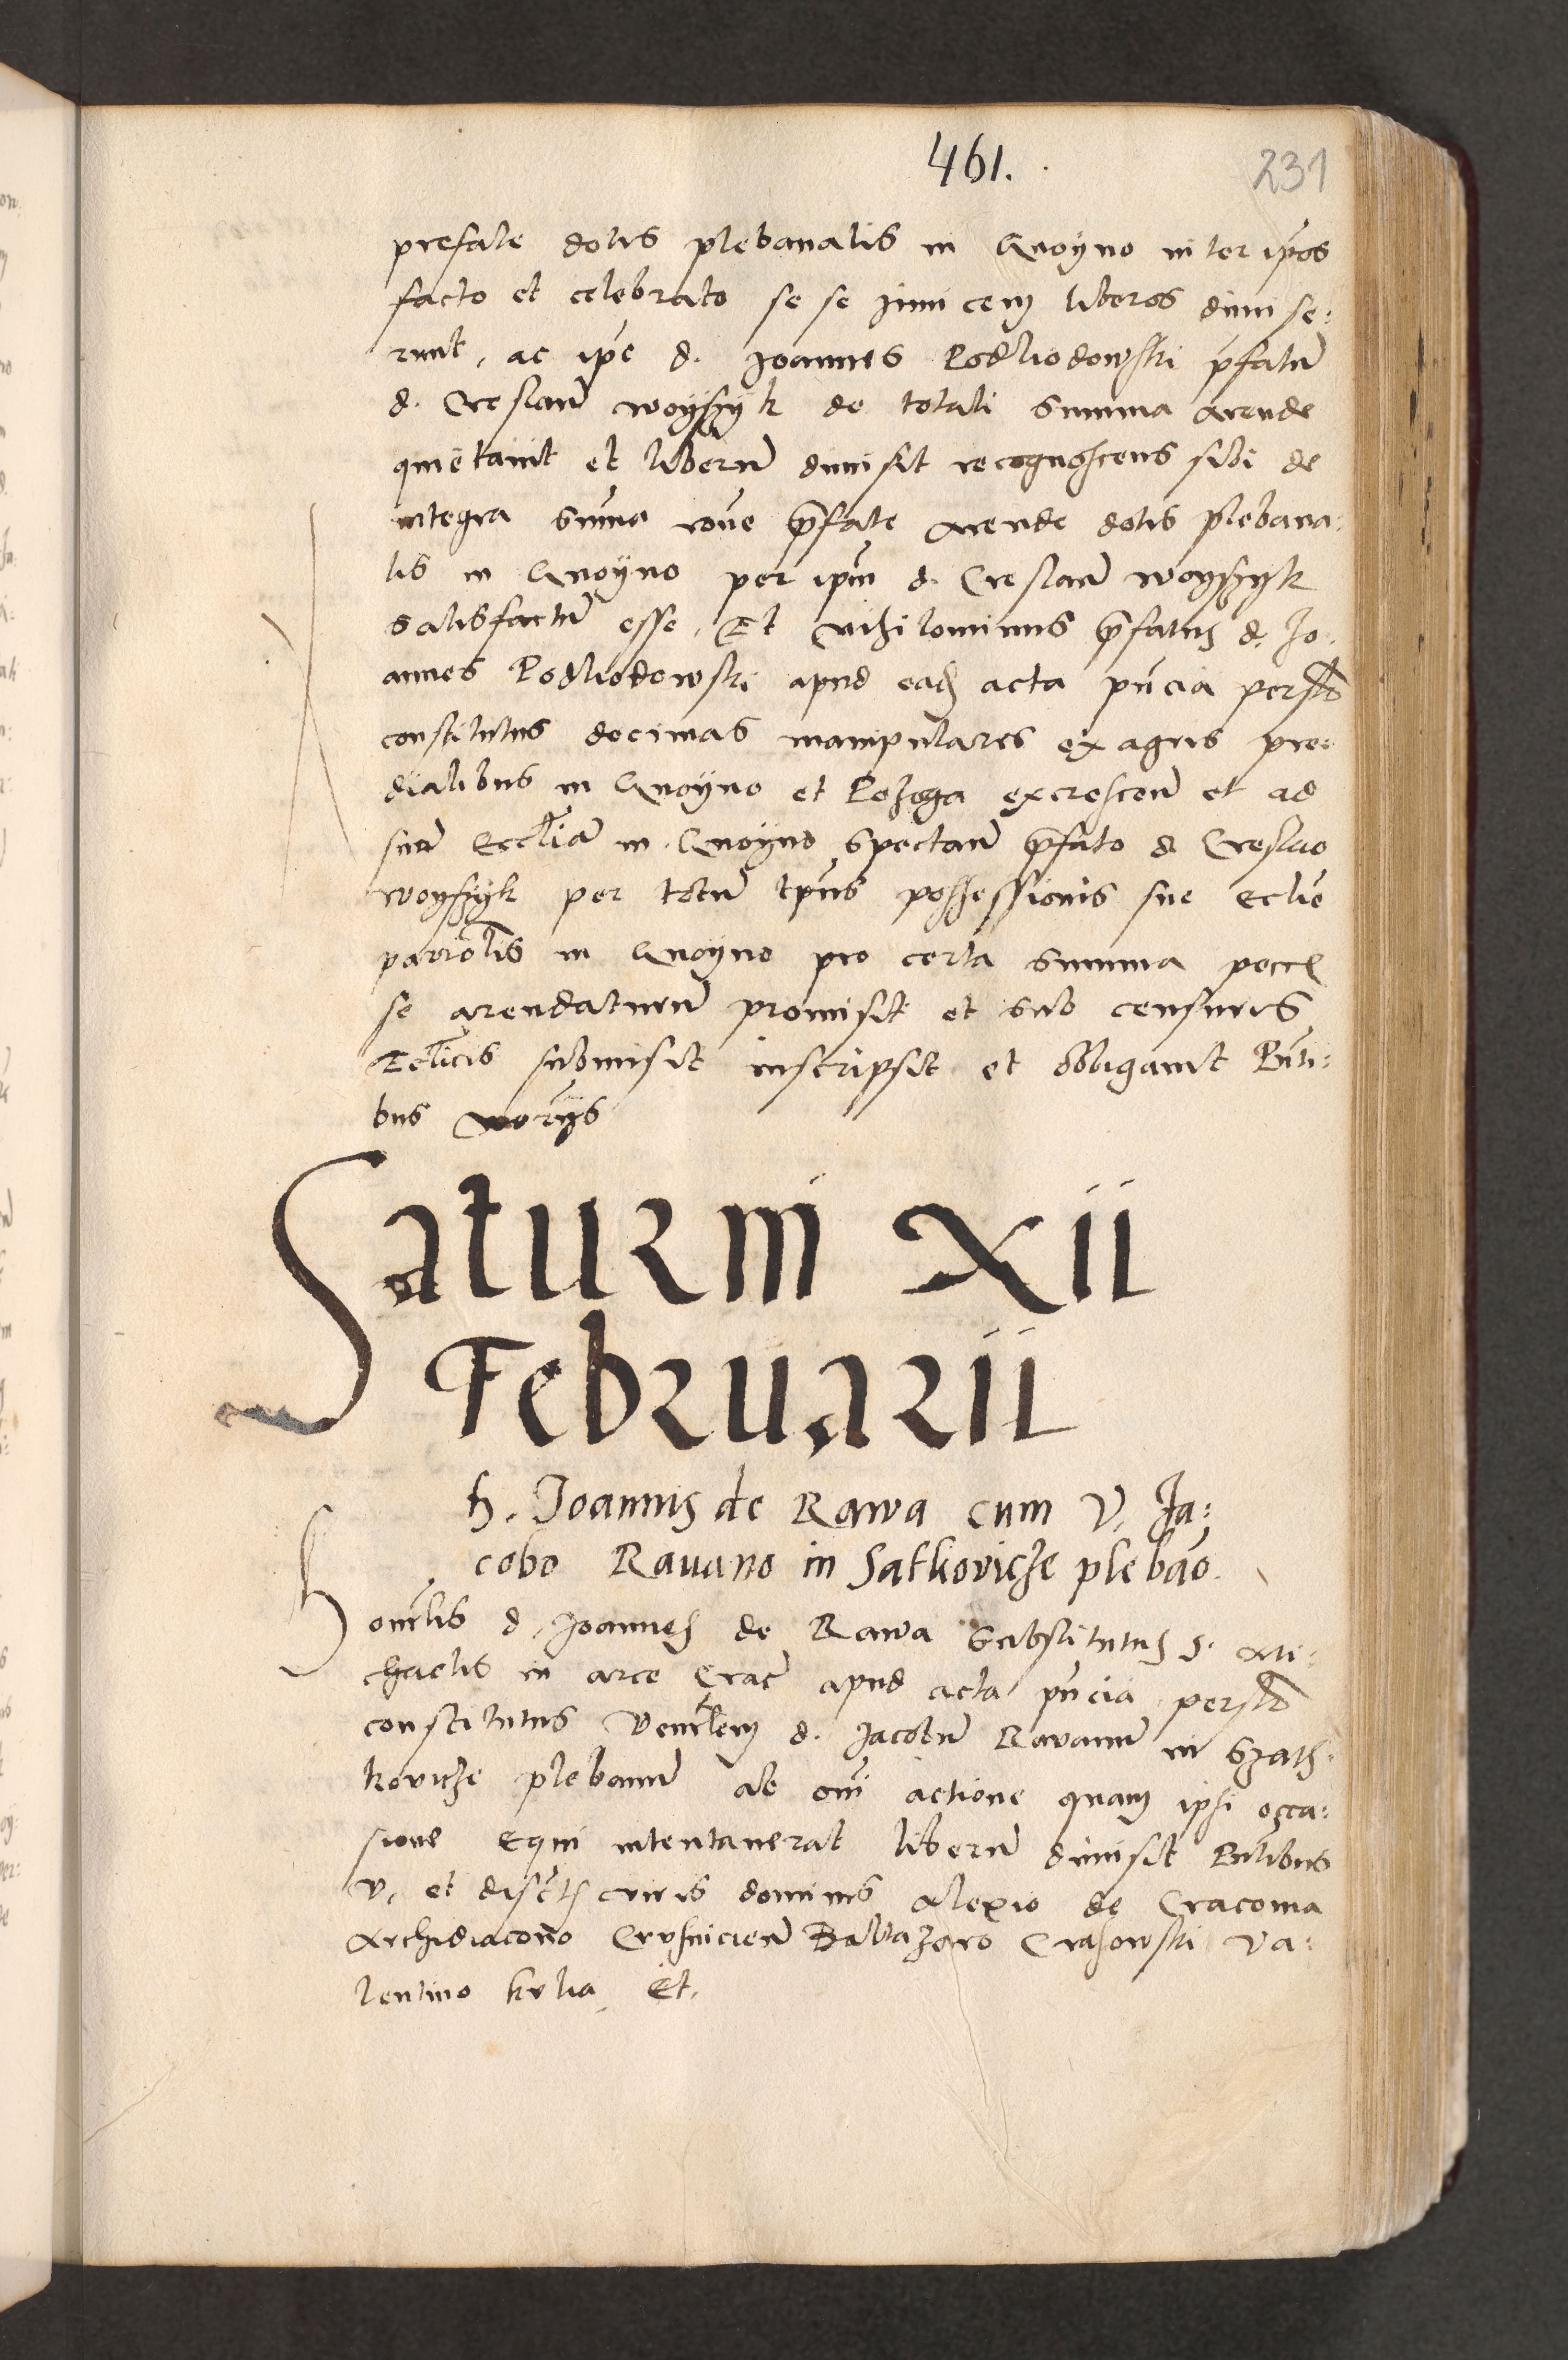 461.
231
prefate dotis plebanalis in Gnoyno inter ip̄os
facto et celebrato se se inuicem liberos dimise:
runt, ac ip̄e d. Joannes Podliodowski p̄fatū
d. Creslaū Woyszyk de totali summa arende
quietauit et liberū dimisit recognoscens sibi de
integra sum̄a rōne p̄fate arende dotis plebana:
lis in Gnoyno per ip̄m d. Creslaū Woyszyk
satisfactū esse, Et nihilominus p̄fatus d. Jo:
annes Podliodowski apud eadē acta pn̄cia persl̄r
constitutus decimas manipulares ex agris pre:
dialibus in Gnoyno et Pozoga excrescen̄ et ad
suā Eccl̄iā in Gnoyno spectan̄ p̄fato d Creslao
Woyszyk per totū tp̄us possessionis sue eclīe
parrōl̄is in Gnoyno pro certa summa pecc̄
se arendaturū promisit et sub censuris
Eccl̄icis submisit inscripsit et obligauit Pn̄ti:
bus
Saturni XII
Februarii
h. Joannis de Rawa cum V. Ja:
cobo Rauano in Satkovicze plebāo.
Honorl̄is d. Joannes de Rawa Substitutus S. Mi:
chaelis in arce Crac̄ apud acta pn̄cia persl̄r
constitutus Venerl̄em d. Jacobū Ravanū in Szath:
kovicze plebanū ab om̄i actione quam ipsi occa:
sione equi intentauerat liberū dimisit Pn̄tibus
V. et discr̄t̄ viris dominis Alexio de Cracouia
Archidiacono Crusuicien̄ Baltazaro Crasowski Va:
lentino kulia Et.